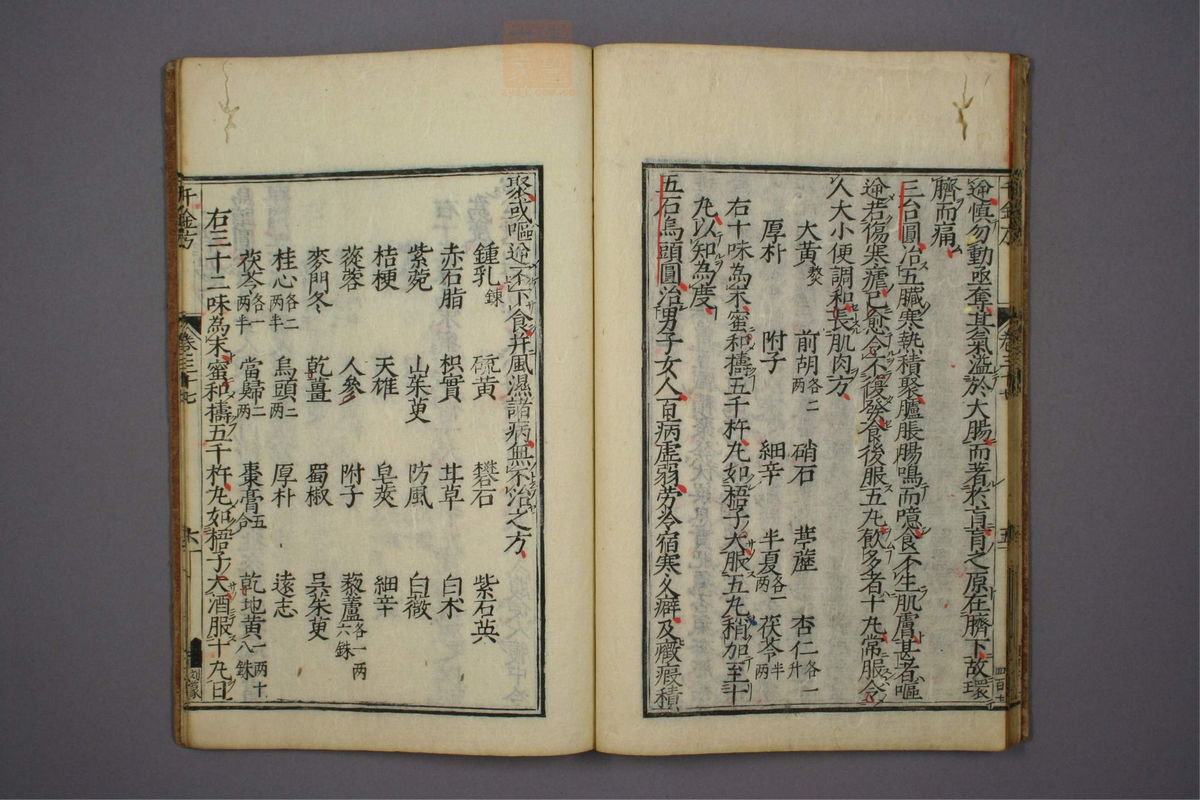 逆慎勿動亟奪其氣溢於大腸而著於肓肓之原在臍下故環
臍而痛
三台圓治五臟寒熱積聚臚脹腸鳴而噫食不生肌膚甚者嘔
逆若傷寒瘧已愈令不復發食後服五丸飲多者十丸常服令
人大小便調和長肌肉方
大黃熬 前胡各二兩 硝石 葶藶 杏仁各一升
厚朴 附子 細辛 半夏各一兩 茯苓半兩
右十味為末蜜和擣五千杵丸如梧子大服五丸稍加至十
丸以知為度
五石烏頭圓治男子女人百病虛弱勞冷宿寒久癖及癥瘕積
聚或嘔逆不下食并風濕諸病無不治之方
鍾乳鍊 硫黃 礬石 紫石英
赤石脂 枳實 甘草 白朮
紫菀 山茱萸 防風 白薇
桔梗 天雄 皂莢 細辛
蓯蓉 人參 附子 藜蘆各一兩六銖
麥門冬 乾薑 蜀椒 吳茱萸
桂心各二兩半 烏頭二兩 厚朴 遠志
茯苓各一兩半 當歸二兩 棗膏五合 乾地黃一兩十八銖
右三十二味為末蜜和擣五千杵丸如梧子大酒服十丸日
千金方 卷三十七 六